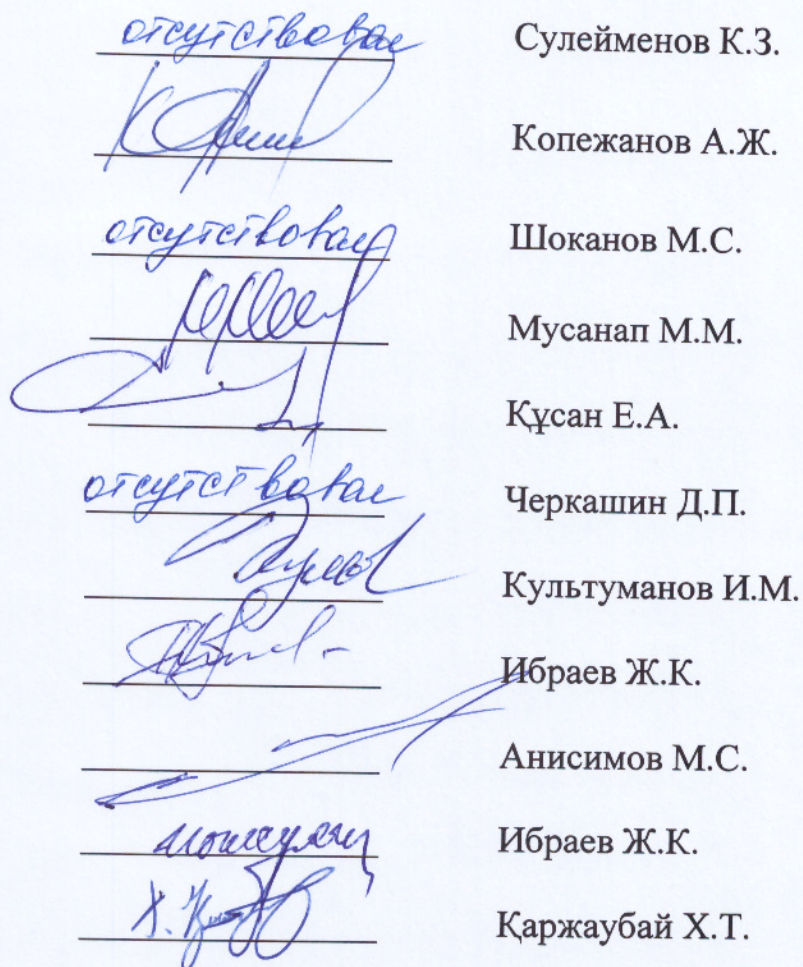 отсутствовал Сулейменов К.З.
Копежанов А.Ж.
отсутствовал Шоканов М.С.
Мусанап М.М.
Құсан Е.А.
отсутствовал Черкашин Д.П.
Культуманов И.М.
Ибраев Ж.К.
Анисимов М.С.
Ибраев Ж.К.
Қаржаубай Х.Т.